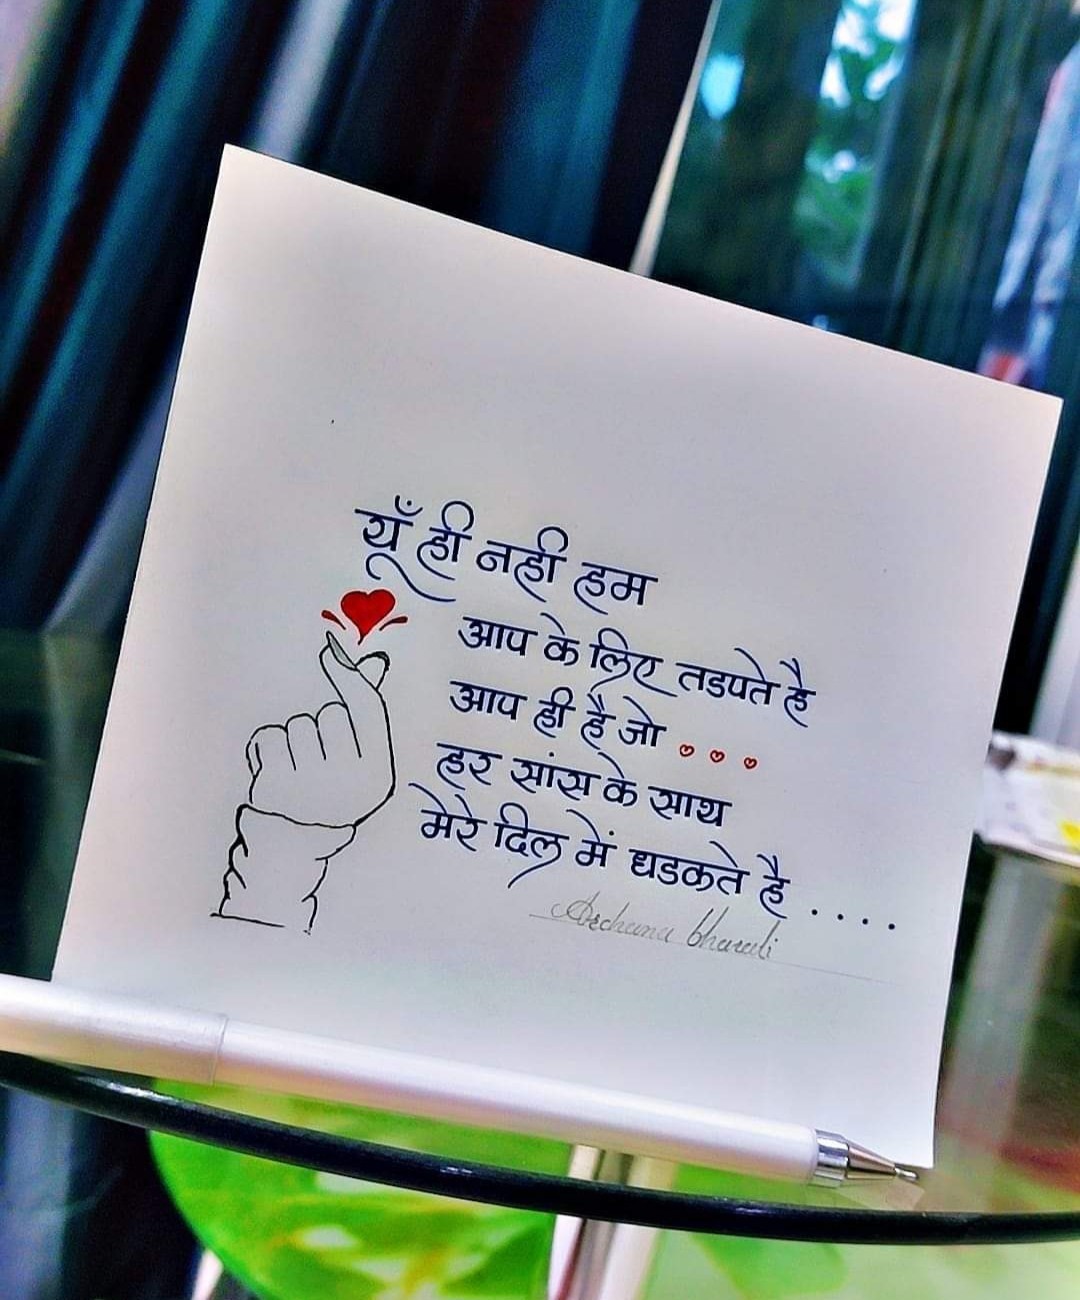 यूँ ही नही हम
आप के लिए तडपते है
आप ही है जो
हर सांस के साथ
मेरे दिल में धडकते है ....
Archana bharali